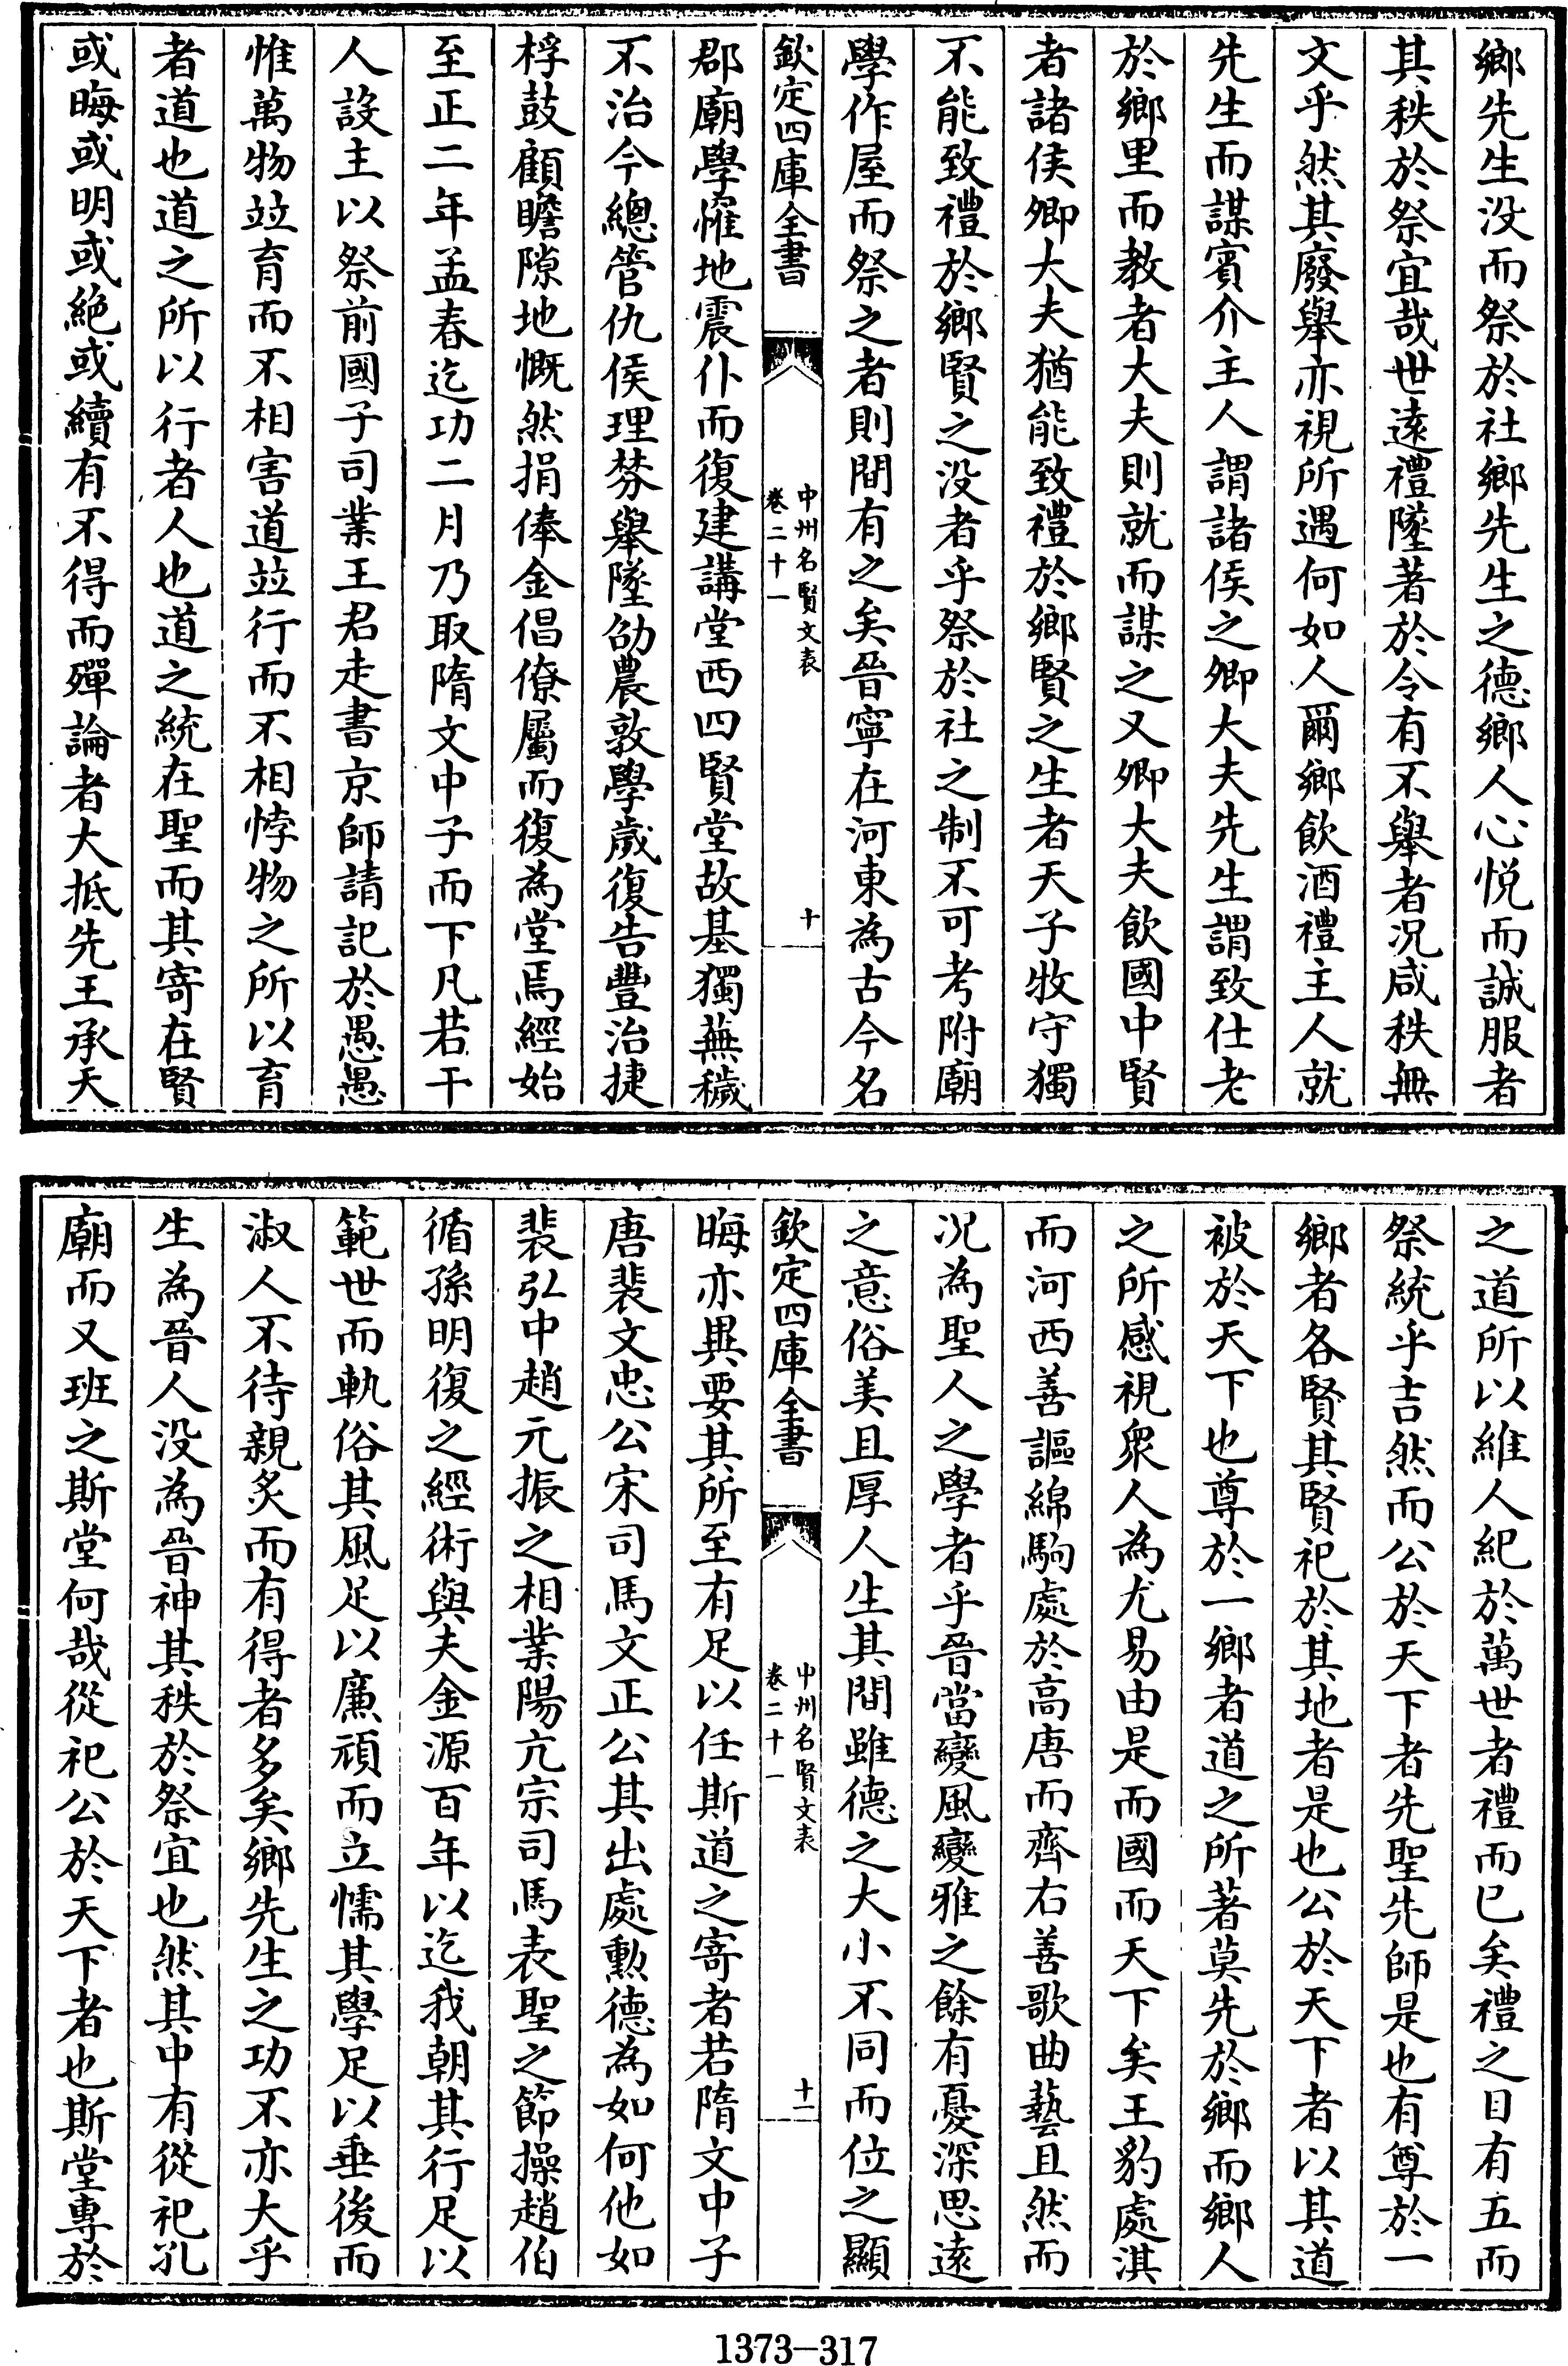 鄉先生没而祭於社鄉先生之德鄉人心悦而誠服者
其秩於祭宜哉世逺禮墜著於令有不舉者况咸秩無
文乎然其廢舉亦視所遇何如人爾鄉飲酒禮主人就
先生而謀賓介主人謂諸侯之卿大夫先生謂致仕老
於鄉里而教者大夫則就而謀之又卿大夫飲國中賢
者諸侯卿大夫猶能致禮於鄉賢之生者天子牧守獨
不能致禮於鄉賢之没者乎祭於社之制不可考附廟
學作屋而祭之者則間有之矣晉寧在河東為古今名
欽定四庫全書
中州名賢文表
卷二十一
十
郡廟學惟地震仆而復建講堂西四賢堂故基獨蕪穢
不治今總管仇侯理棼舉墜劭農敦學歲復告豐治捷
桴鼓顧瞻隙地慨然捐俸金倡僚屬而復為堂焉經始
至正二年孟春迄功二月乃取隋文中子而下凡若干
人設主以祭前國子司業王君走書京師請記於愚愚
惟萬物竝育而不相害道竝行而不相悖物之所以育
者道也道之所以行者人也道之統在聖而其寄在賢
或晦或明或絶或續有不得而殫論者大抵先王承天
之道所以維人紀於萬世者禮而已矣禮之目有五而
祭統乎吉然而公於天下者先聖先師是也有尊於一
鄉者各賢其賢祀於其地者是也公於天下者以其道
被於天下也尊於一鄉者道之所著莫先於鄉而鄉人
之所感視衆人為尤易由是而國而天下矣王豹處淇
而河西善謳綿駒處於高唐而齊右善歌曲藝且然而
况為聖人之學者乎晉當變風變雅之餘有憂深思逺
之意俗美且厚人生其間雖德之大小不同而位之顯
欽定四庫全書
中州名賢文表
卷二十一
十一
晦亦異要其所至有足以任斯道之寄者若隋文中子
唐裴文忠公宋司馬文正公其出處勲德為如何他如
裴弘中趙元振之相業陽亢宗司馬表聖之節操趙伯
循孫明復之經術與夫金源百年以迄我朝其行足以
範世而軌俗其風足以廉頑而立懦其學足以垂後而
淑人不待親炙而有得者多矣鄉先生之功不亦大乎
生為晉人没為晉神其秩於祭宜也然其中有從祀孔
廟而又班之斯堂何哉從祀公於天下者也斯堂專於
1373-317